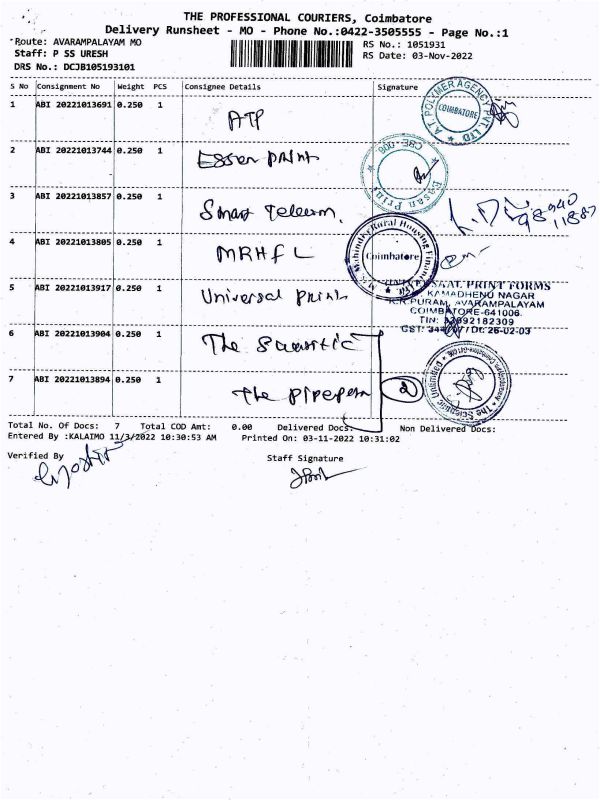 THE PROFESSIONAL COURIERS, Coimbatore
Delivery Runsheet - MO - Phone No.:0422-3505555 - Page No.:1
Route: AVARAMPALAYAM MO
RS No.: 1051931
Staff: P SS URESH
RS Date: 03-Nov-2022
DRS No.: DCJB105193101
S No Consignment No Weight PCS Consignee Details Signature
1 ABI 20221013691 0.250 1 ATP
A.T. POLYMER AGENCY PVT. LTD
COIMBATORE
2 ABI 20221013744 0.250 1 Essen print
Easan Print
CBE-006
3 ABI 20221013857 0.250 1 Smart Telecom.
98940
11887
4 ABI 20221013805 0.250 1 MRHFL
Mahindra Rural Housing Finance Ltd.
Coimbatore
5 ABI 20221013917 0.250 1 Universal print
PRINT FORMS
KAMADHENU NAGAR
PURAM, AVARAMPALAYAM
COIMBATORE-641006
TIN:
6 ABI 20221013904 0.250 1 The
7 ABI 20221013894 0.250 1 The 2
The Scientic Unlimited
Total No. Of Docs: 7 Total COD Amt: 0.00 Delivered Docs: Non Delivered Docs:
Entered By :KALAIMO 11/3/2022 10:30:53 AM Printed On: 03-11-2022 10:31:02
Verified By Staff Signature